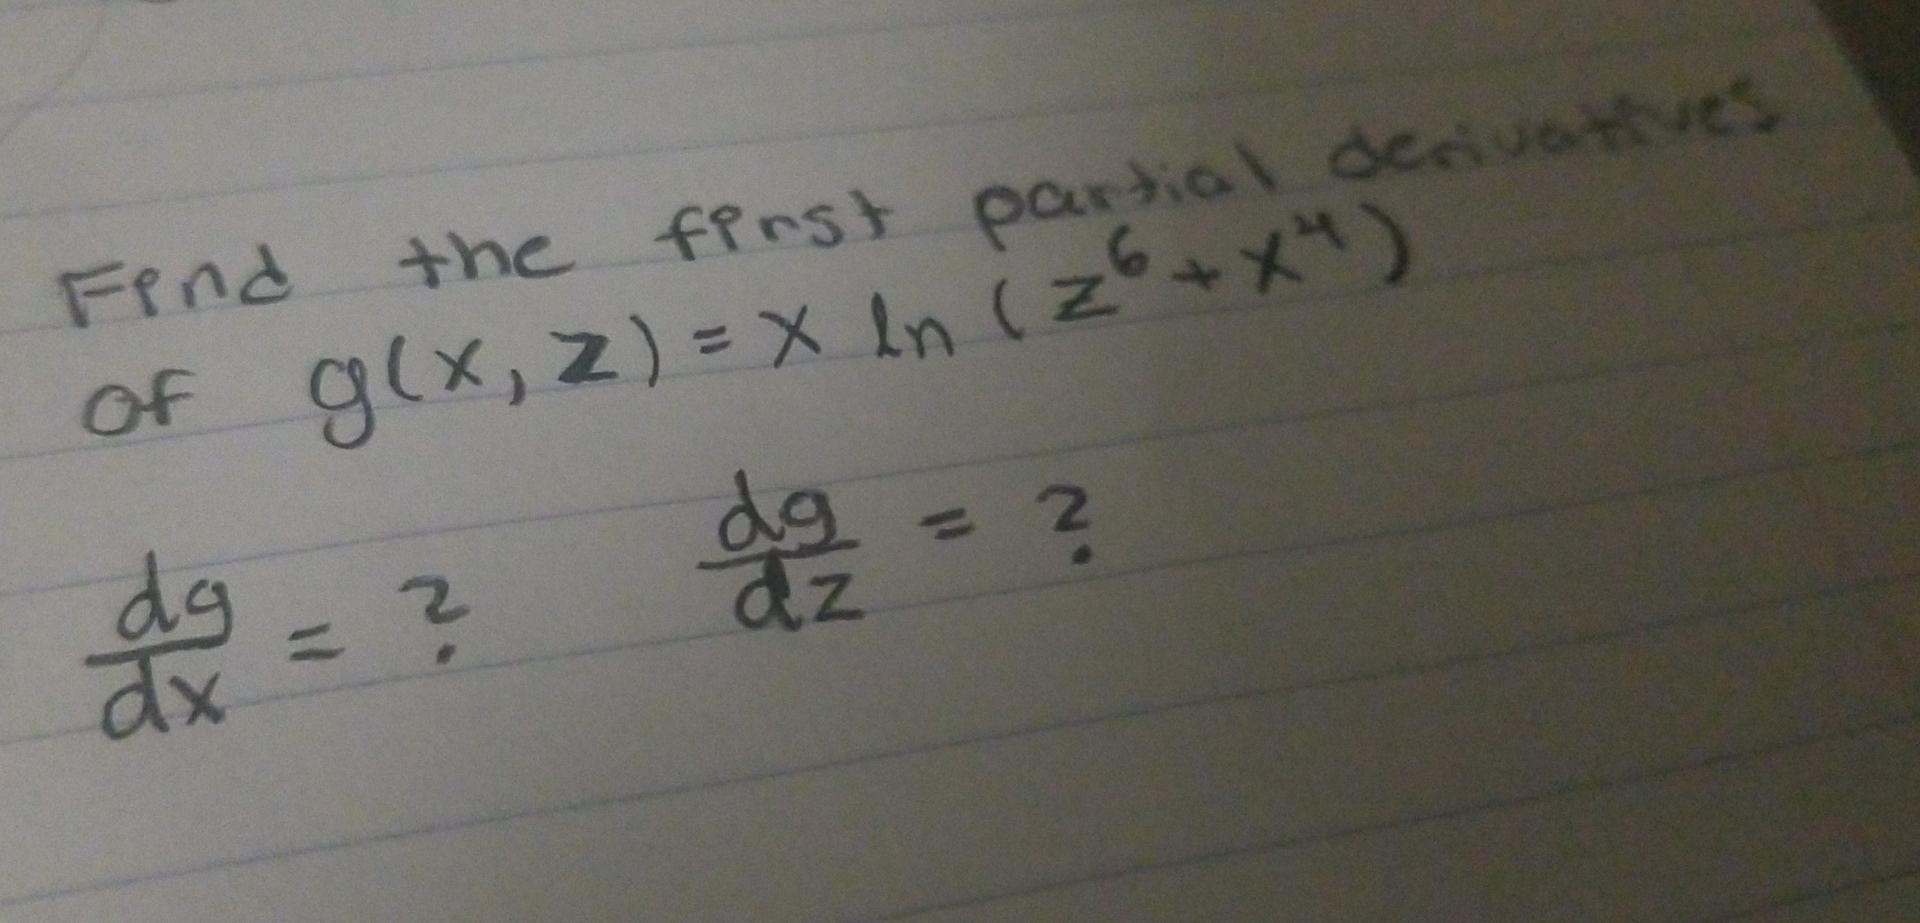 Find the first partial derivatives
of g(x, z) = x ln (z⁶ + x⁴)
dg/dx = ? dg/dz = ?